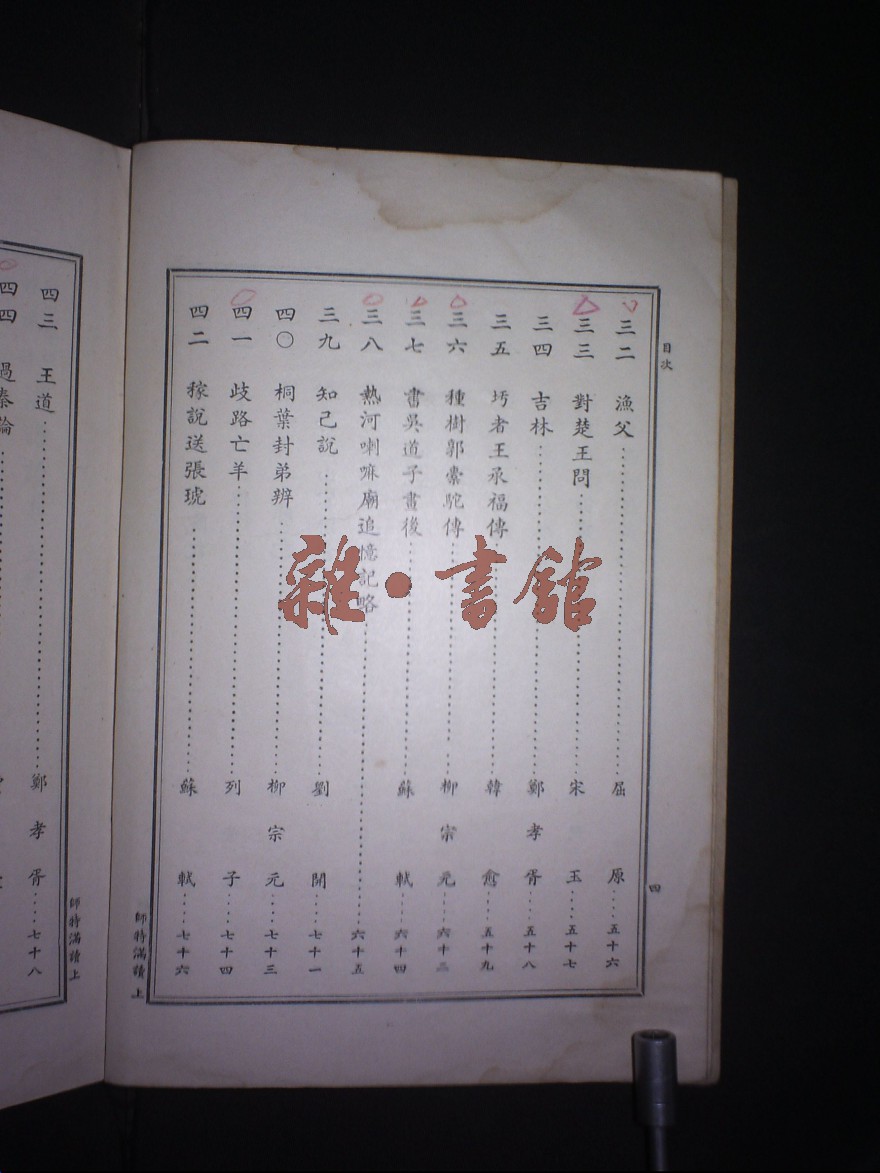 目次
三二 漁父 屈原 五十六
三三 對楚王問 宋玉 五十七
三四 吉林 鄭孝胥 五十八
三五 圬者王承福傳 韓愈 五十九
三六 種樹郭橐駝傳 柳宗元 六十二
三七 書吳道子畫後 蘇軾 六十四
三八 熱河喇嘛廟追憶記略 六十五
三九 知己說 劉開 七十一
四〇 桐葉封弟辨 柳宗元 七十三
四一 歧路亡羊 列子 七十四
四二 稼說送張琥 蘇軾 七十六
四
師特滿讀上
四三 王道 鄭孝胥 七十八
四四 過秦論
師特滿讀上
雜·書館